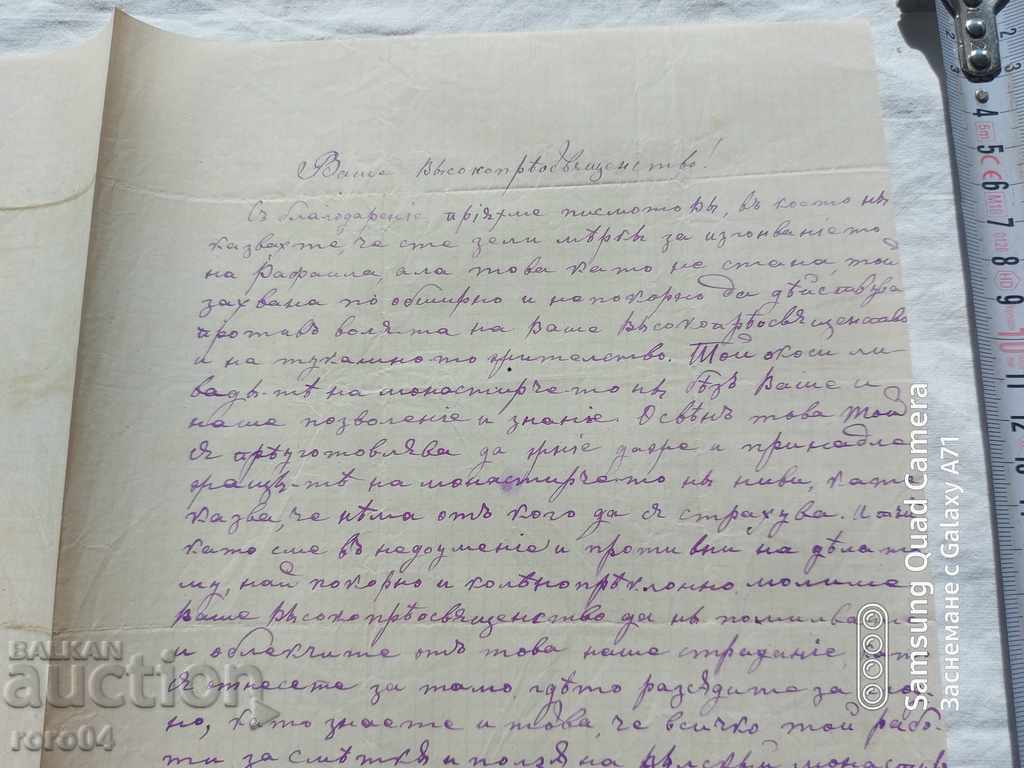 Ваше Высокопрѣосвященство!
Съ благодарение, прияхме писмото вы, въ което ны
казвахте, че сте зели мѣркы за изгонванието
на Рафаила, ала това като не стана, той
захвана по обширно и непокорно да дѣйствува
противъ волята на Ваше Высокопрѣосвященство
и на тукашното жителство. Той окоси ли
вады-тѣ на монастирчето ны безъ Ваше и
наше позволение и знание. Освѣнъ това той
ся прѣуготовлява да жние даже и принадле
жащы-тѣ на монастирчето ны ниви, като
казва, че нѣма отъ кого да ся страхува. И
като сме въ недоумение и противни на дѣлат
му, най покорно и колѣнопрѣклонно молиме
Ваше Высокопрѣосвященство да ны помилвате
и облекчите отъ това наше страдание, като
ся отнесете за тамо, гдѣто разсѫдите за
но, като знаете и това, че всичко той рабо
ти за смѣтка и полза на Рылский монастир
BALKAN
auction
roro04
Samsung Quad Camera
Заснемане с Galaxy A71
2
3
4
5m
5
6
7
8
9
10
11
12
13